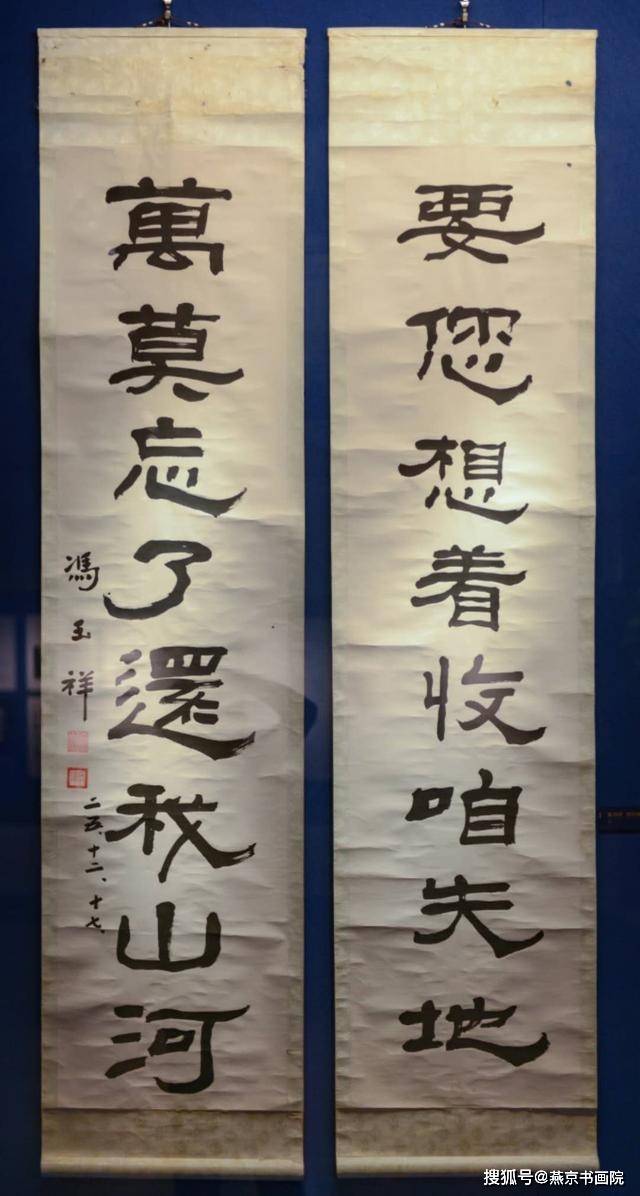 要您想着收咱失地
萬莫忘了還我山河
馮玉祥
二五、十二、十七、
搜狐号@燕京书画院